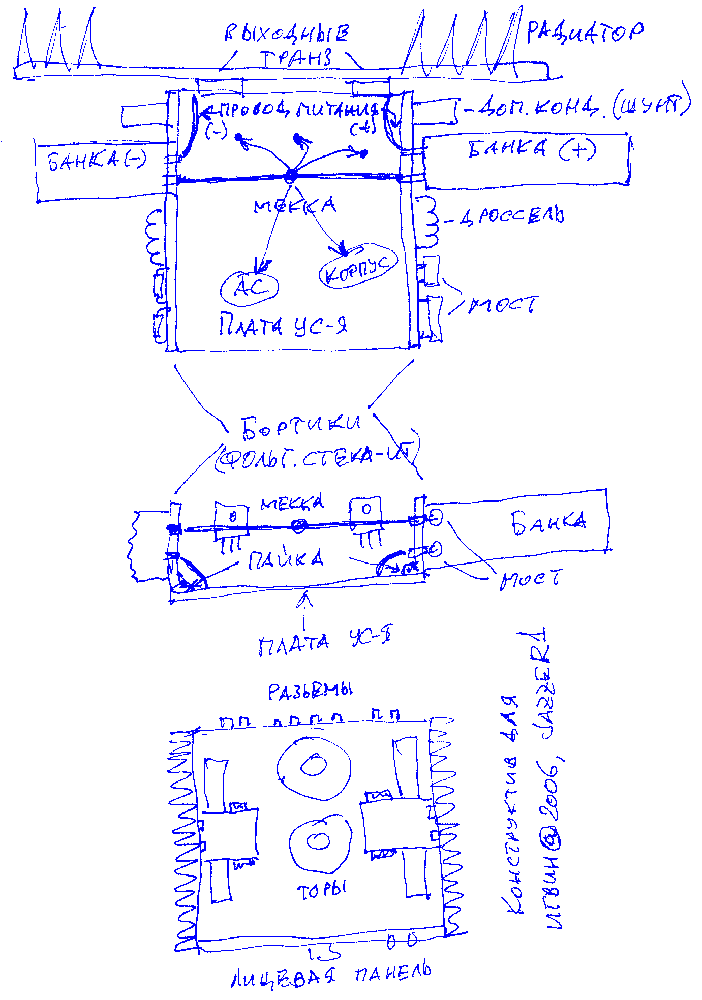 ВЫХОДНЫЕ
ТРАНЗ
РАДИАТОР
ПРОВОД ПИТАНИЯ
(-)
(+)
ДОП. КОНД. (ШУНТ)
БАНКА (-)
БАНКА (+)
МЕККА
ДРОССЕЛЬ
АС
КОРПУС
МОСТ
ПЛАТА УС-Я
БОРТИКИ
(ФОЛЬГ. СТЕКА-ИТ)
МЕККА
БАНКА
ПАЙКА
МОСТ
ПЛАТА УС-Я
РАЗЬЕМЫ
ТОРЫ
ЛИЦЕВАЯ ПАНЕЛЬ
КОНСТРУКТИВ ДЛЯ
ИГВИН@2006, JAZZER1